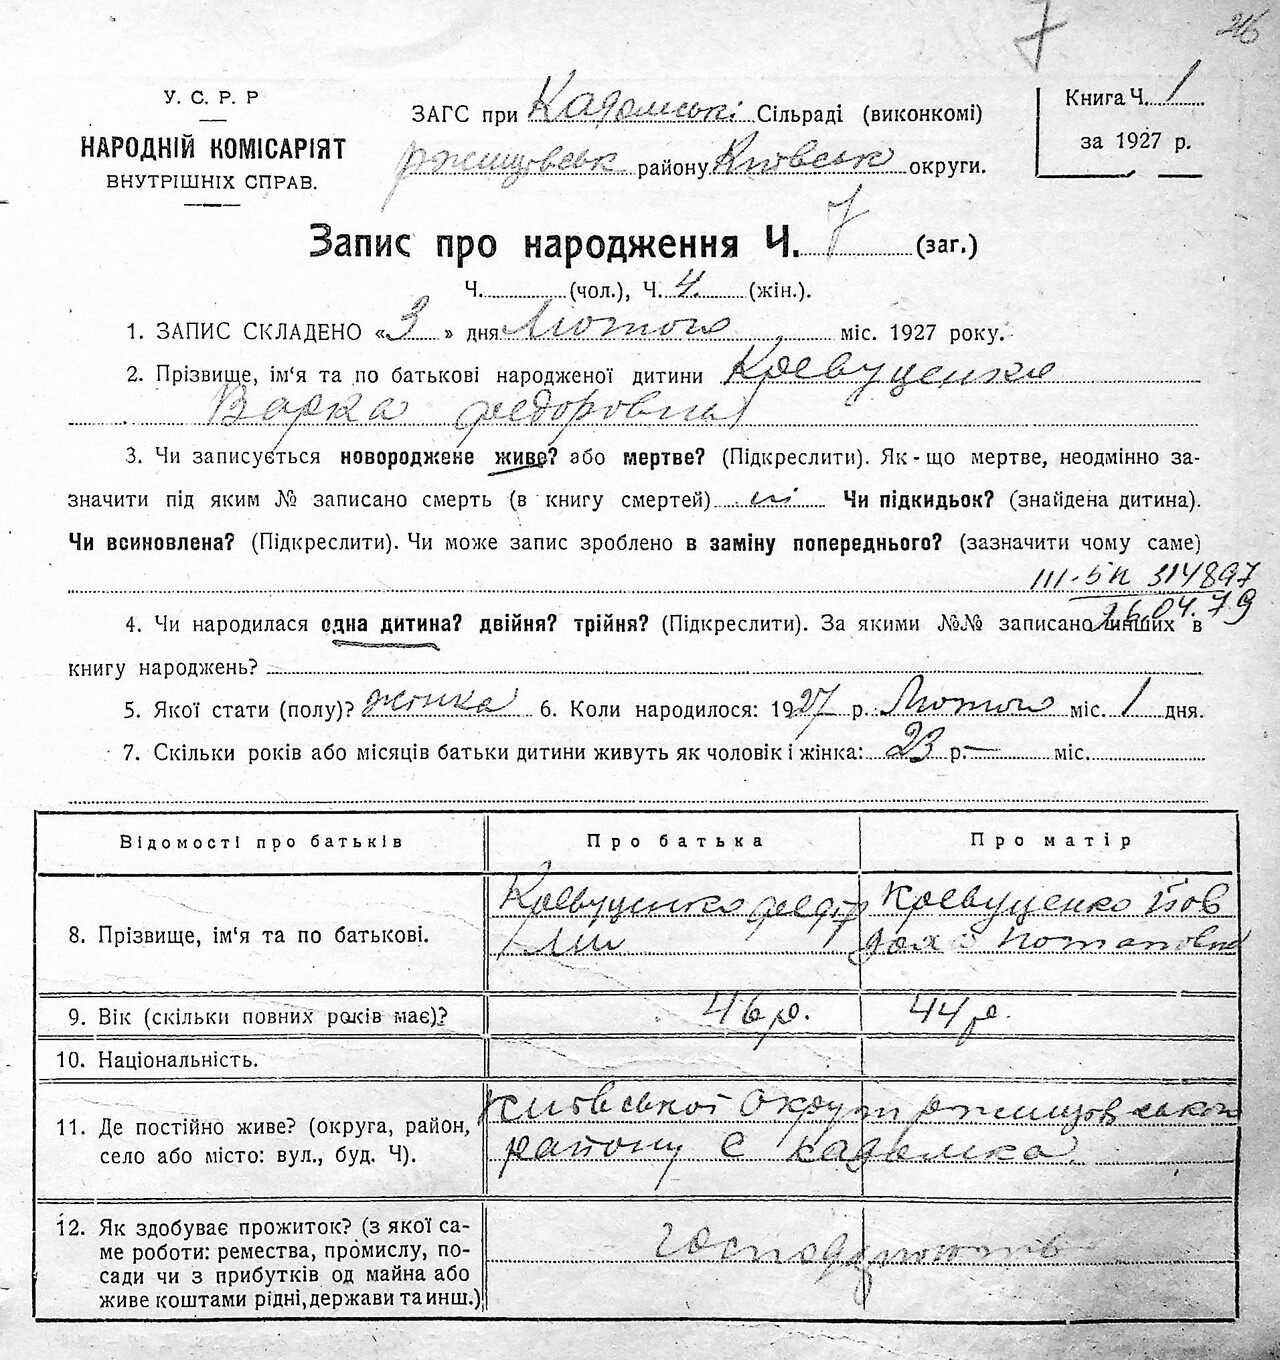 7
26
У. С. Р. Р
НАРОДНІЙ КОМІСАРІЯТ
ВНУТРІШНІХ СПРАВ.
ЗАГС при Кадомські Сільраді (виконкомі)
Ржищовськ району Київськ округи.
Книга Ч. 1
за 1927 р.
Запис про народження Ч. 7 (заг.)
Ч. (чол.), Ч. 4. (жін.).
1. ЗАПИС СКЛАДЕНО «3» дня Лютого міс. 1927 року.
2. Прізвище, ім'я та по батькові народженої дитини Кревуценко
Варка Федоровна
3. Чи записується новороджене живе? або мертве? (Підкреслити). Як-що мертве, неодмінно за-
значити під яким № записано смерть (в книгу смертей) ні Чи підкидьок? (знайдена дитина).
Чи всиновлена? (Підкреслити). Чи може запис зроблено в заміну попереднього? (зазначити чому саме)
III-БК 314897
26.04.79
4. Чи народилася одна дитина? двійня? трійня? (Підкреслити). За якими №№ записано инших в
книгу народжень?
5. Якої стати (полу)? жінка 6. Коли народилося: 1927 р. Лютого міс. 1 дня.
7. Скільки років або місяців батьки дитини живуть як чоловік і жінка: 23 р. — міс.
Відомості про батьків Про батька Про матір
8. Прізвище, ім'я та по батькові.
Кревуценко Федір
Кревуценко Пов
Потаповна
9. Вік (скільки повних років має)? 46 р. 44 р.
10. Національність.
11. Де постійно живе? (округа, район,
село або місто: вул., буд. Ч).
Київської Округи Ржищовськой
району С Кадомка
12. Як здобуває прожиток? (з якої са-
ме роботи: ремества, промислу, по-
сади чи з прибутків од майна або
живе коштами рідні, держави та инш.)